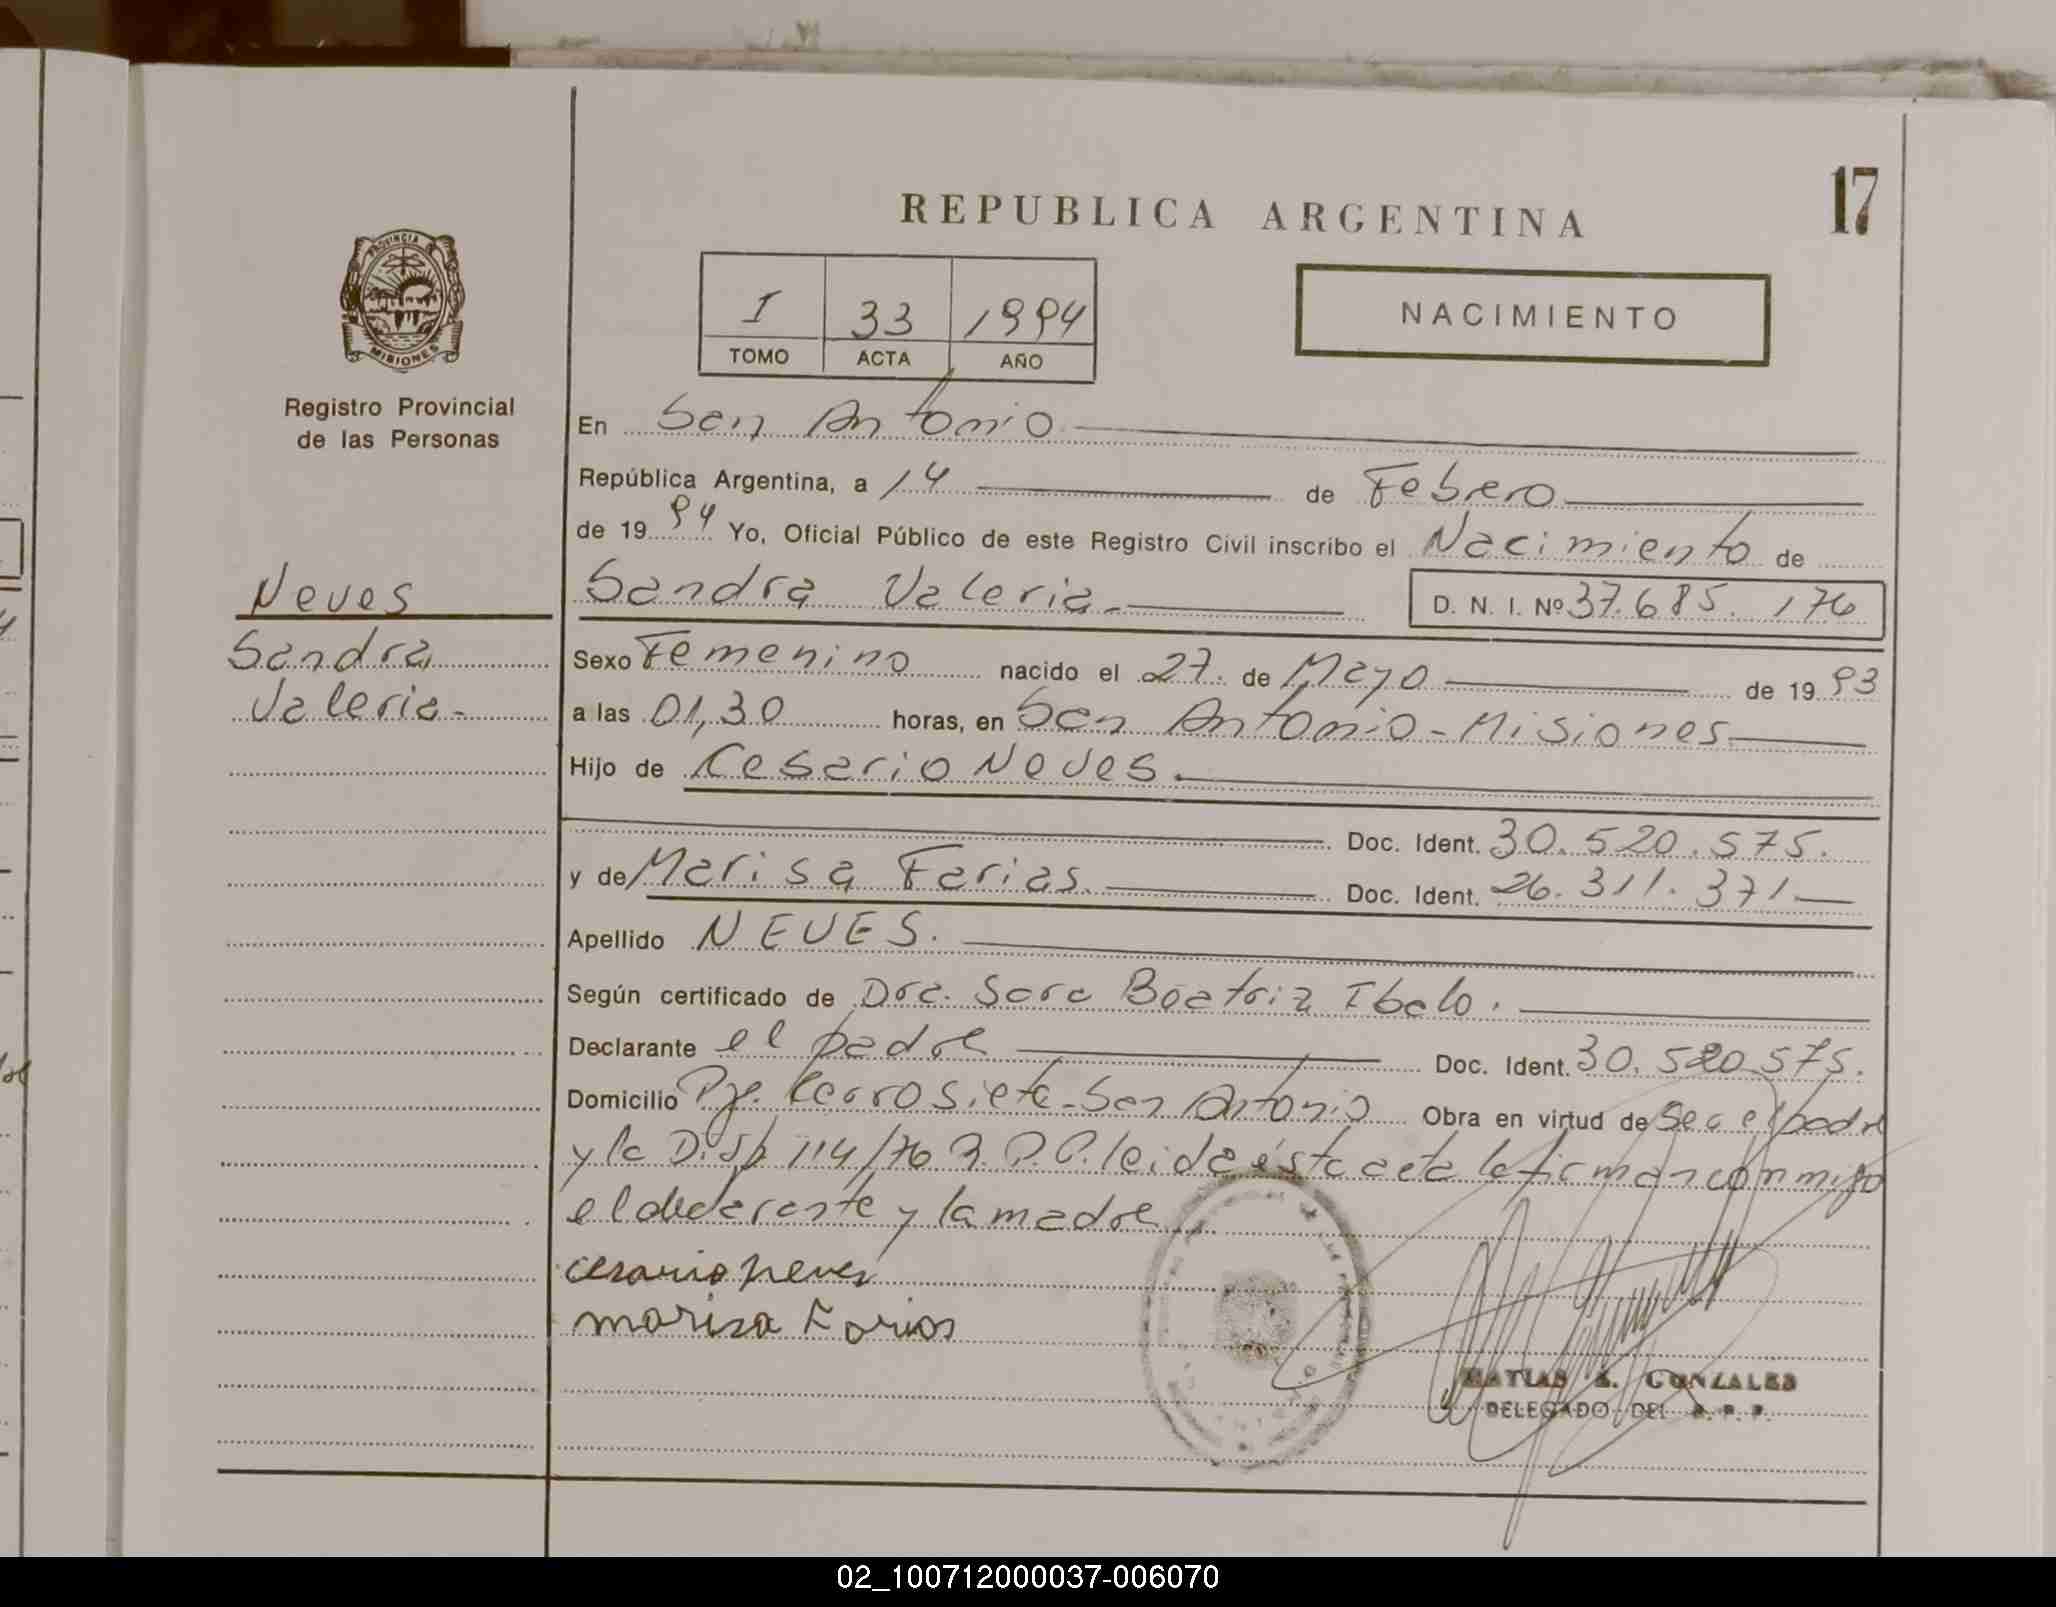 17
REPUBLICA ARGENTINA
PROVINCIA
MISIONES
I 33 1994
TOMO ACTA AÑO
NACIMIENTO
Registro Provincial
de las Personas
En San Antonio
República Argentina, a 14 de Febrero
de 1994 Yo, Oficial Público de este Registro Civil inscribo el Nacimiento de
Neves
Sandra Valeria.- D. N. I. Nº 37.685.176
Sandra
Valeria.-
Sexo Femenino nacido el 27. de Mayo de 1993
a las 01,30 horas, en San Antonio - Misiones
Hijo de Cesario Neves.
Doc. Ident. 30.520.575.
y de Marisa Farias. Doc. Ident. 26.311.371
Apellido NEVES.
Según certificado de Dra. Sara Beatriz Ibalo.
Declarante el padre Doc. Ident. 30.520.575.
Domicilio Pje. Cerro Siete - San Antonio Obra en virtud de Ser el padre
y la Disp 114/76 R.P.P. leida ésta acta la firman conmigo
el declarante y la madre
cesario neves
marisa Farias
MATIAS A. GONZALES
DELEGADO DEL R. P. P.
02_100712000037-006070